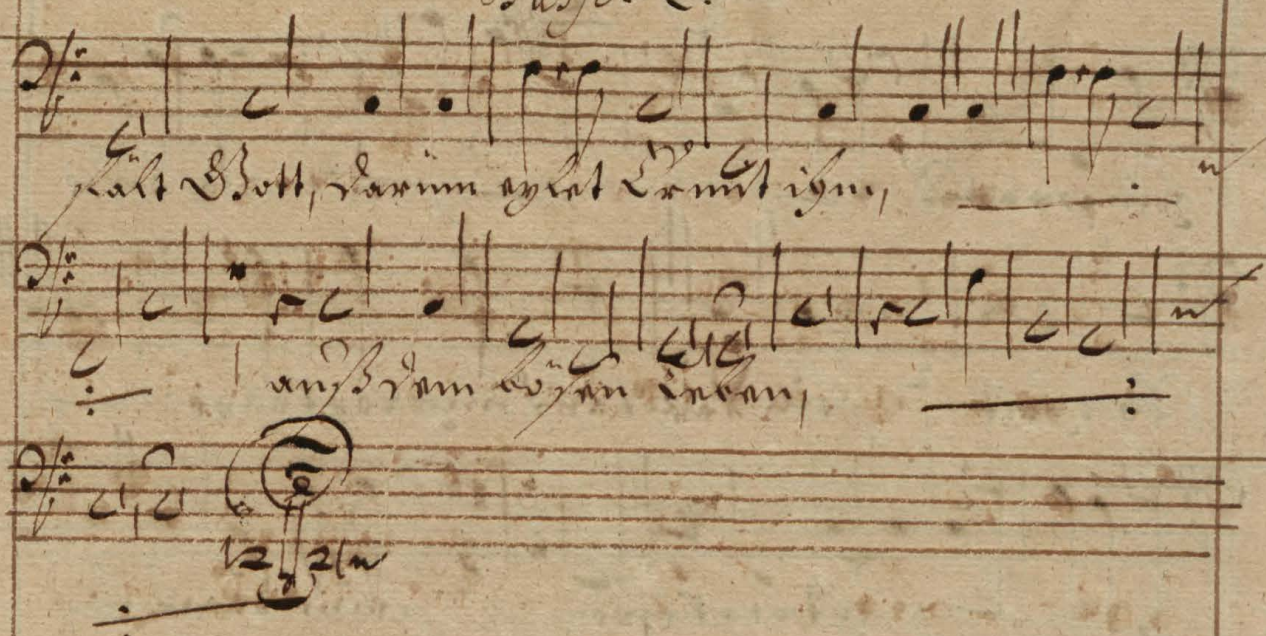 fält Gott, darüm eylet Er mit ihm,
auß dem bösen Leben,